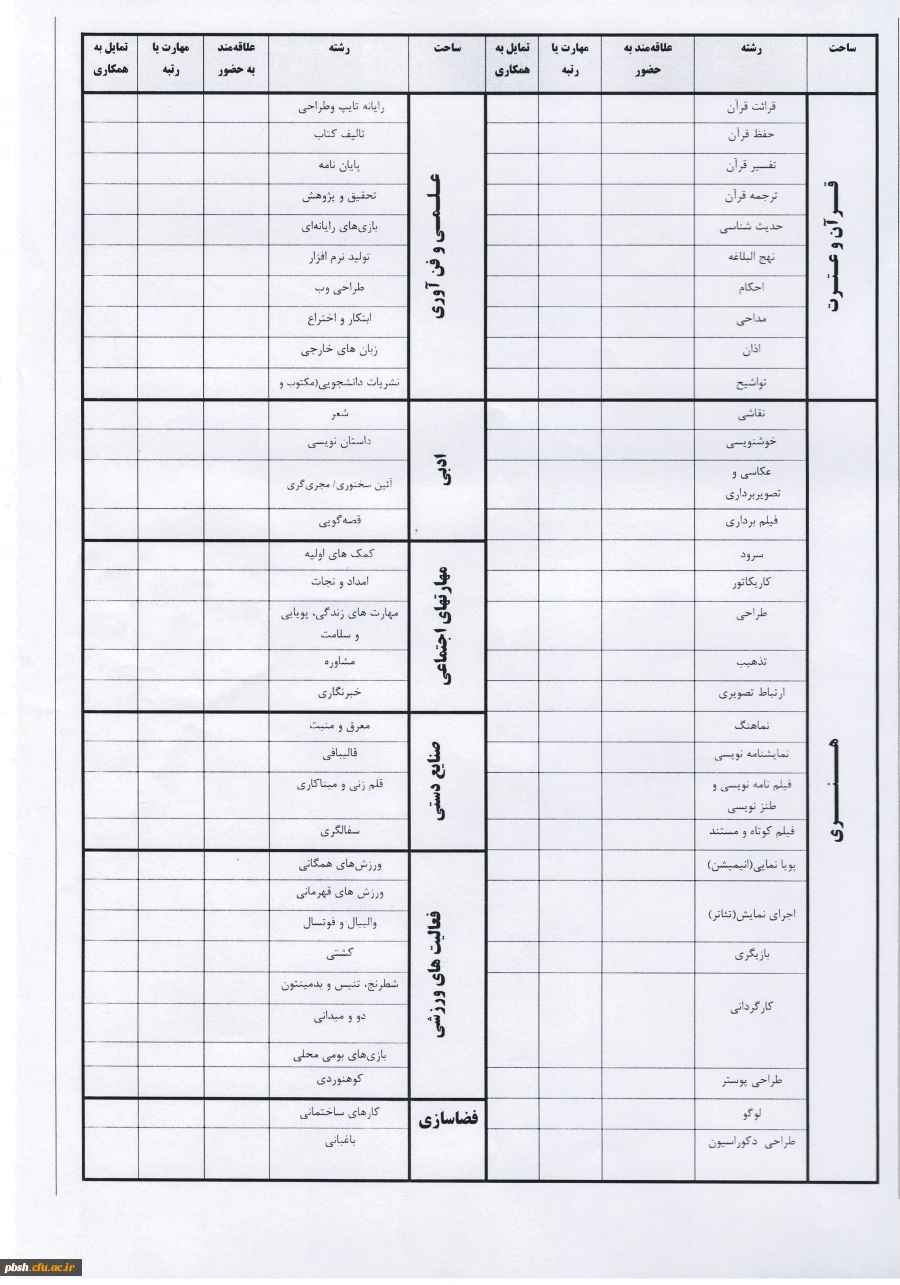 ساحت
رشته
علاقه‌مند به
حضور
مهارت یا
رتبه
تمایل به
همکاری
قرآن و عترت
قرائت قرآن
حفظ قرآن
تفسیر قرآن
ترجمه قرآن
حدیث شناسی
نهج البلاغه
احکام
مداحی
اذان
تواشیح
هنری
نقاشی
خوشنویسی
عکاسی و
تصویربرداری
فیلم برداری
سرود
کاریکاتور
طراحی
تذهیب
ارتباط تصویری
نماهنگ
نمایشنامه نویسی
فیلم نامه نویسی و
طنز نویسی
فیلم کوتاه و مستند
پویا نمایی(انیمیشن)
اجرای نمایش(تئاتر)
بازیگری
کارگردانی
طراحی پوستر
لوگو
طراحی دکوراسیون
ساحت
رشته
علاقه‌مند
به حضور
مهارت یا
رتبه
تمایل به
همکاری
علمی و فن آوری
رایانه تایپ وطراحی
تالیف کتاب
پایان نامه
تحقیق و پژوهش
بازی‌های رایانه‌ای
تولید نرم افزار
طراحی وب
ابتکار و اختراع
زبان های خارجی
نشریات دانشجویی(مکتوب و
ادبی
شعر
داستان نویسی
آئین سخنوری/ مجری‌گری
قصه‌گویی
مهارتهای اجتماعی
کمک های اولیه
امداد و نجات
مهارت های زندگی، پویایی
و سلامت
مشاوره
خبرنگاری
صنایع دستی
معرق و منبت
قالیبافی
قلم زنی و میناکاری
سفالگری
فعالیت های ورزشی
ورزش‌های همگانی
ورزش های قهرمانی
والیبال و فوتسال
کشتی
شطرنج، تنیس و بدمینتون
دو و میدانی
بازی‌های بومی محلی
کوهنوردی
فضاسازی
کارهای ساختمانی
باغبانی
pbsh.cfu.ac.ir